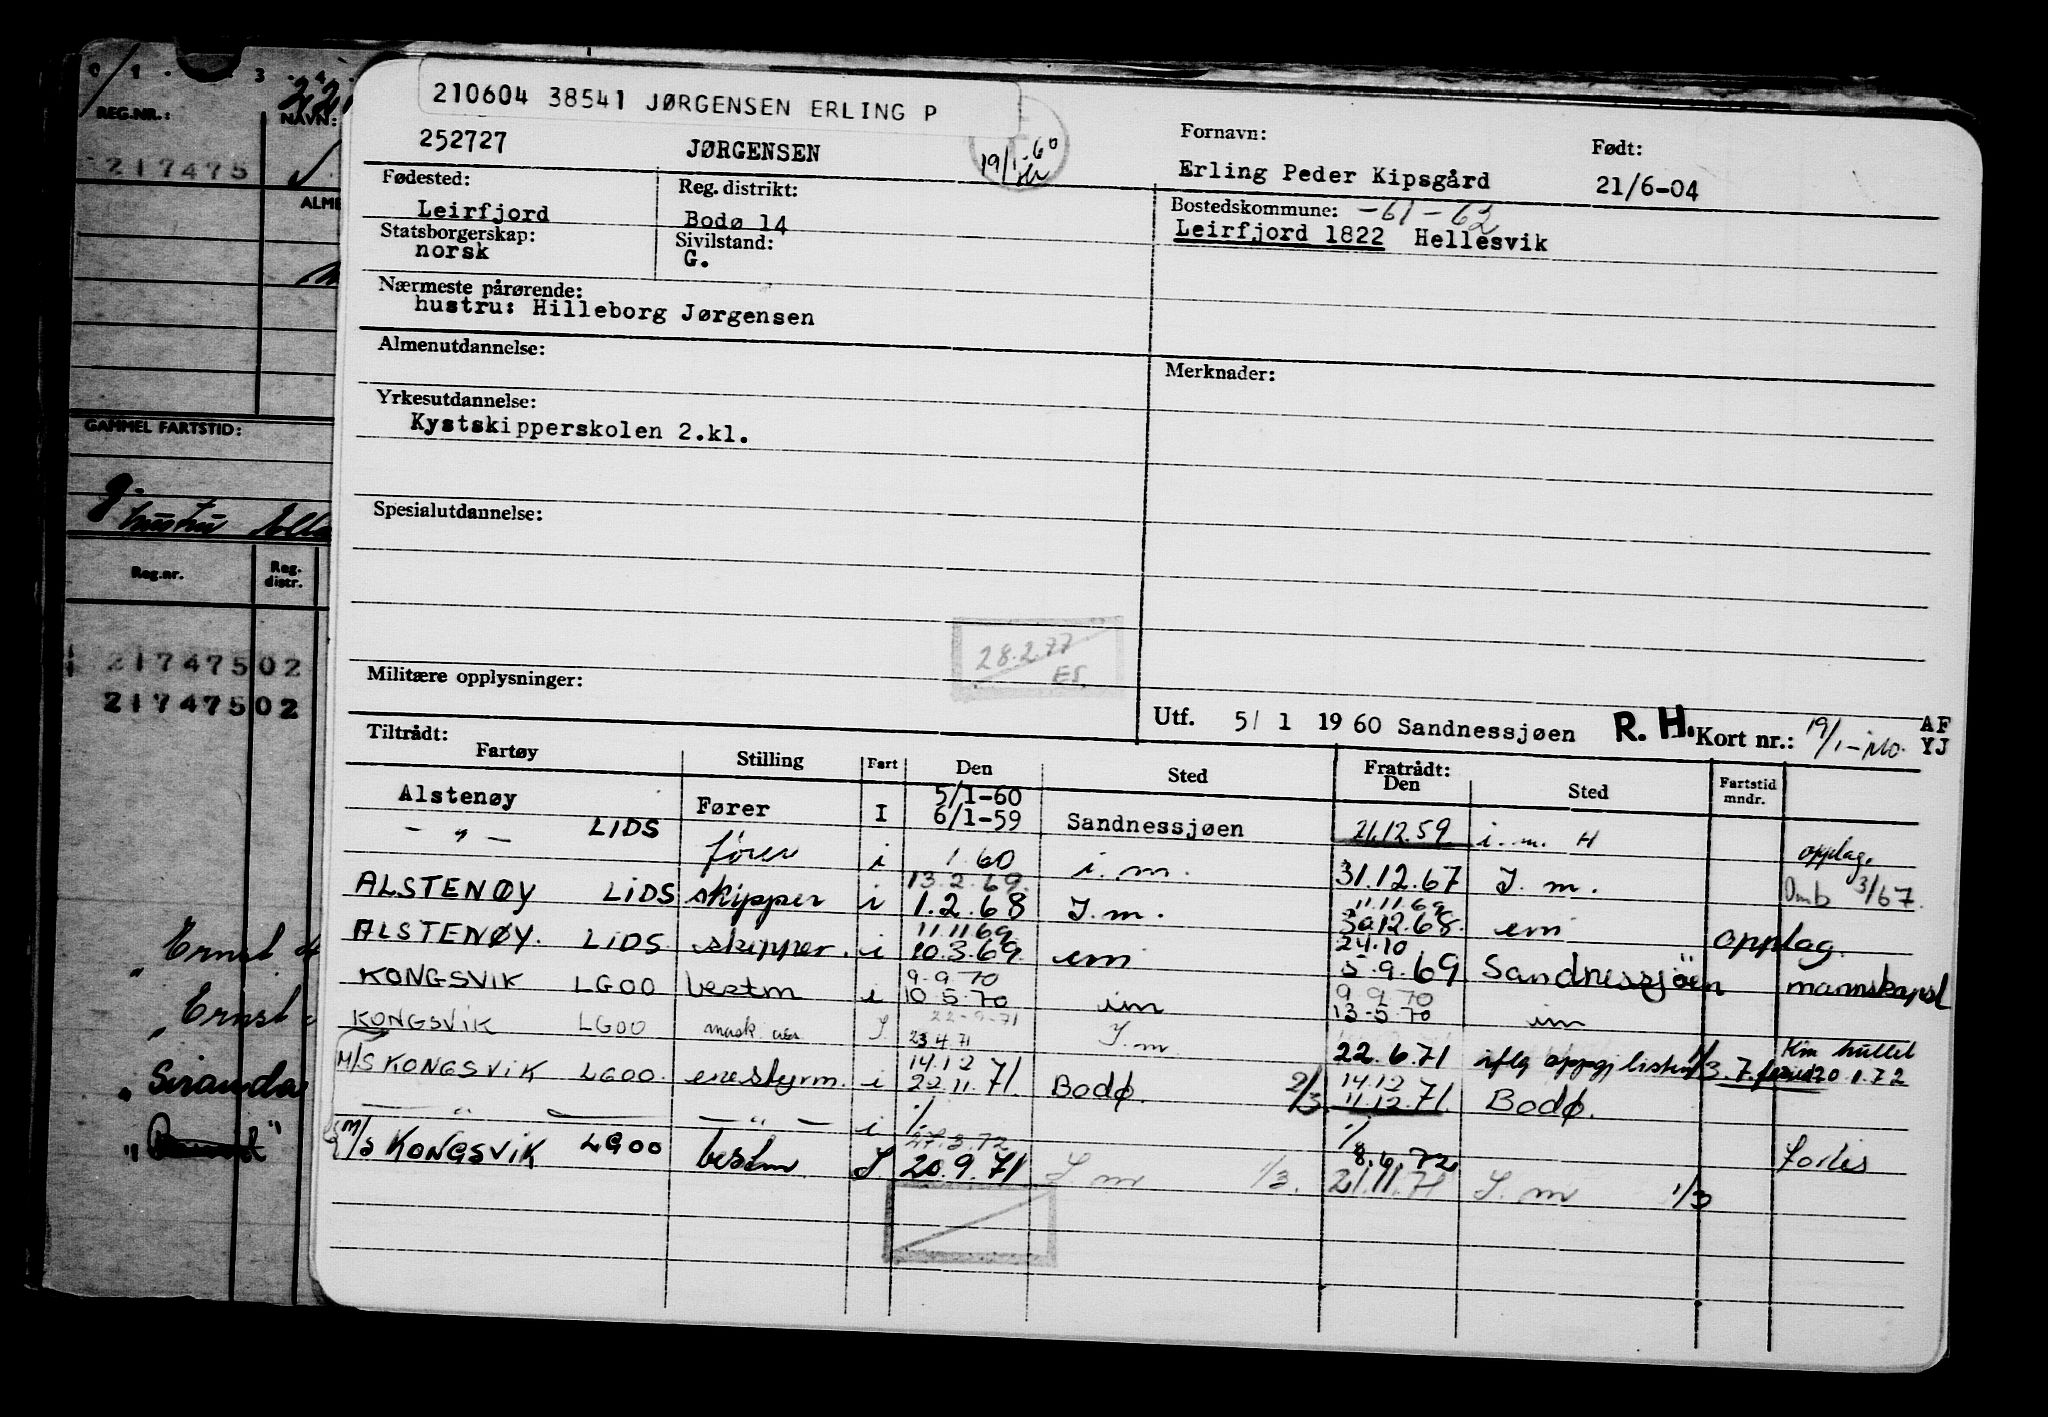 210604 38541 JØRGENSEN ERLING P
252727 JØRGENSEN
19/1-60
Fornavn:
Erling Peder Kipsgård
Født:
21/6-04
Fødested:
Leirfjord
Reg. distrikt:
Bodø 14
Bostedskommune: -61-62
Leirfjord 1822 Hellesvik
Statsborgerskap:
norsk
Sivilstand:
G.
Nærmeste pårørende:
hustru: Hilleborg Jørgensen
Almenutdannelse:
Merknader:
Yrkesutdannelse:
Kystskipperskolen 2.kl.
Spesialutdannelse:
28.2.77
ES.
Militære opplysninger:
Utf. 5/ 1 1960 Sandnessjøen R. H. Kort nr.: 19/1- AF
YJ
Tiltrådt:
Fartøy Stilling Fart Den Sted Fratrådt: Den Sted Fartstid mndr.
Alstenøy Fører I 5/1-60
6/1-59 Sandnessjøen 21.12.59 i. m. H
- " - LIDS fører i 1.60 i. m. 31.12.67 I. m. opplag. 3/67
ALSTENØY LIDS skipper i 13.2.69
1.2.68 I. m. 11.11.69
30.12.68 em opplag.
ALSTENØY. LIDS skipper. i 11.11.69
10.3.69 em 24.10
5.9.69 Sandnessjöen mannskapsl
KONGSVIK LGOO bestm i 9.9.70
10.5.70 im 9.9.70
13-5.70 im
KONGSVIK LGOO mask. I. 22-9-71
23.4.71 I. m 22.6.71 iflg oppgj listen 1/3.7. 20.1.72
M/S KONGSVIK LGOO. enestyrm. i 14.12
22.11.71. Bodø. 2/3. 14.12
11.12.71. Bodø.
- " - - " - i 1/
27.3.72 1/
8.6.72
M/S KONGSVIK LGOO bestm I. 20.9.71 I m 1/3. 21.11.71 I. m 1/3
0 1 3 4
REG.NR.: NAVN:
217475
ALME
GAMMEL FARTSTID:
g.
hustru
Reg.nr. Reg. distr.
21747502
21747502
" Ernst
" Ernst
"
"